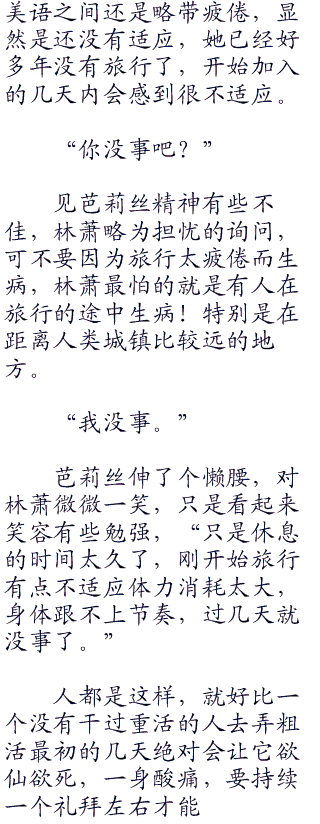 美语之间还是略带疲倦，显
然是还没有适应，她已经好
多年没有旅行了，开始加入
的几天内会感到很不适应。
“你没事吧？”
见芭莉丝精神有些不
佳，林萧略为担忧的询问，
可不要因为旅行太疲倦而生
病，林萧最怕的就是有人在
旅行的途中生病！特别是在
距离人类城镇比较远的地
方。
“我没事。”
芭莉丝伸了个懒腰，对
林萧微微一笑，只是看起来
笑容有些勉强，“只是休息
的时间太久了，刚开始旅行
有点不适应体力消耗太大，
身体跟不上节奏，过几天就
没事了。”
人都是这样，就好比一
个没有干过重活的人去弄粗
活最初的几天绝对会让它欲
仙欲死，一身酸痛，要持续
一个礼拜左右才能